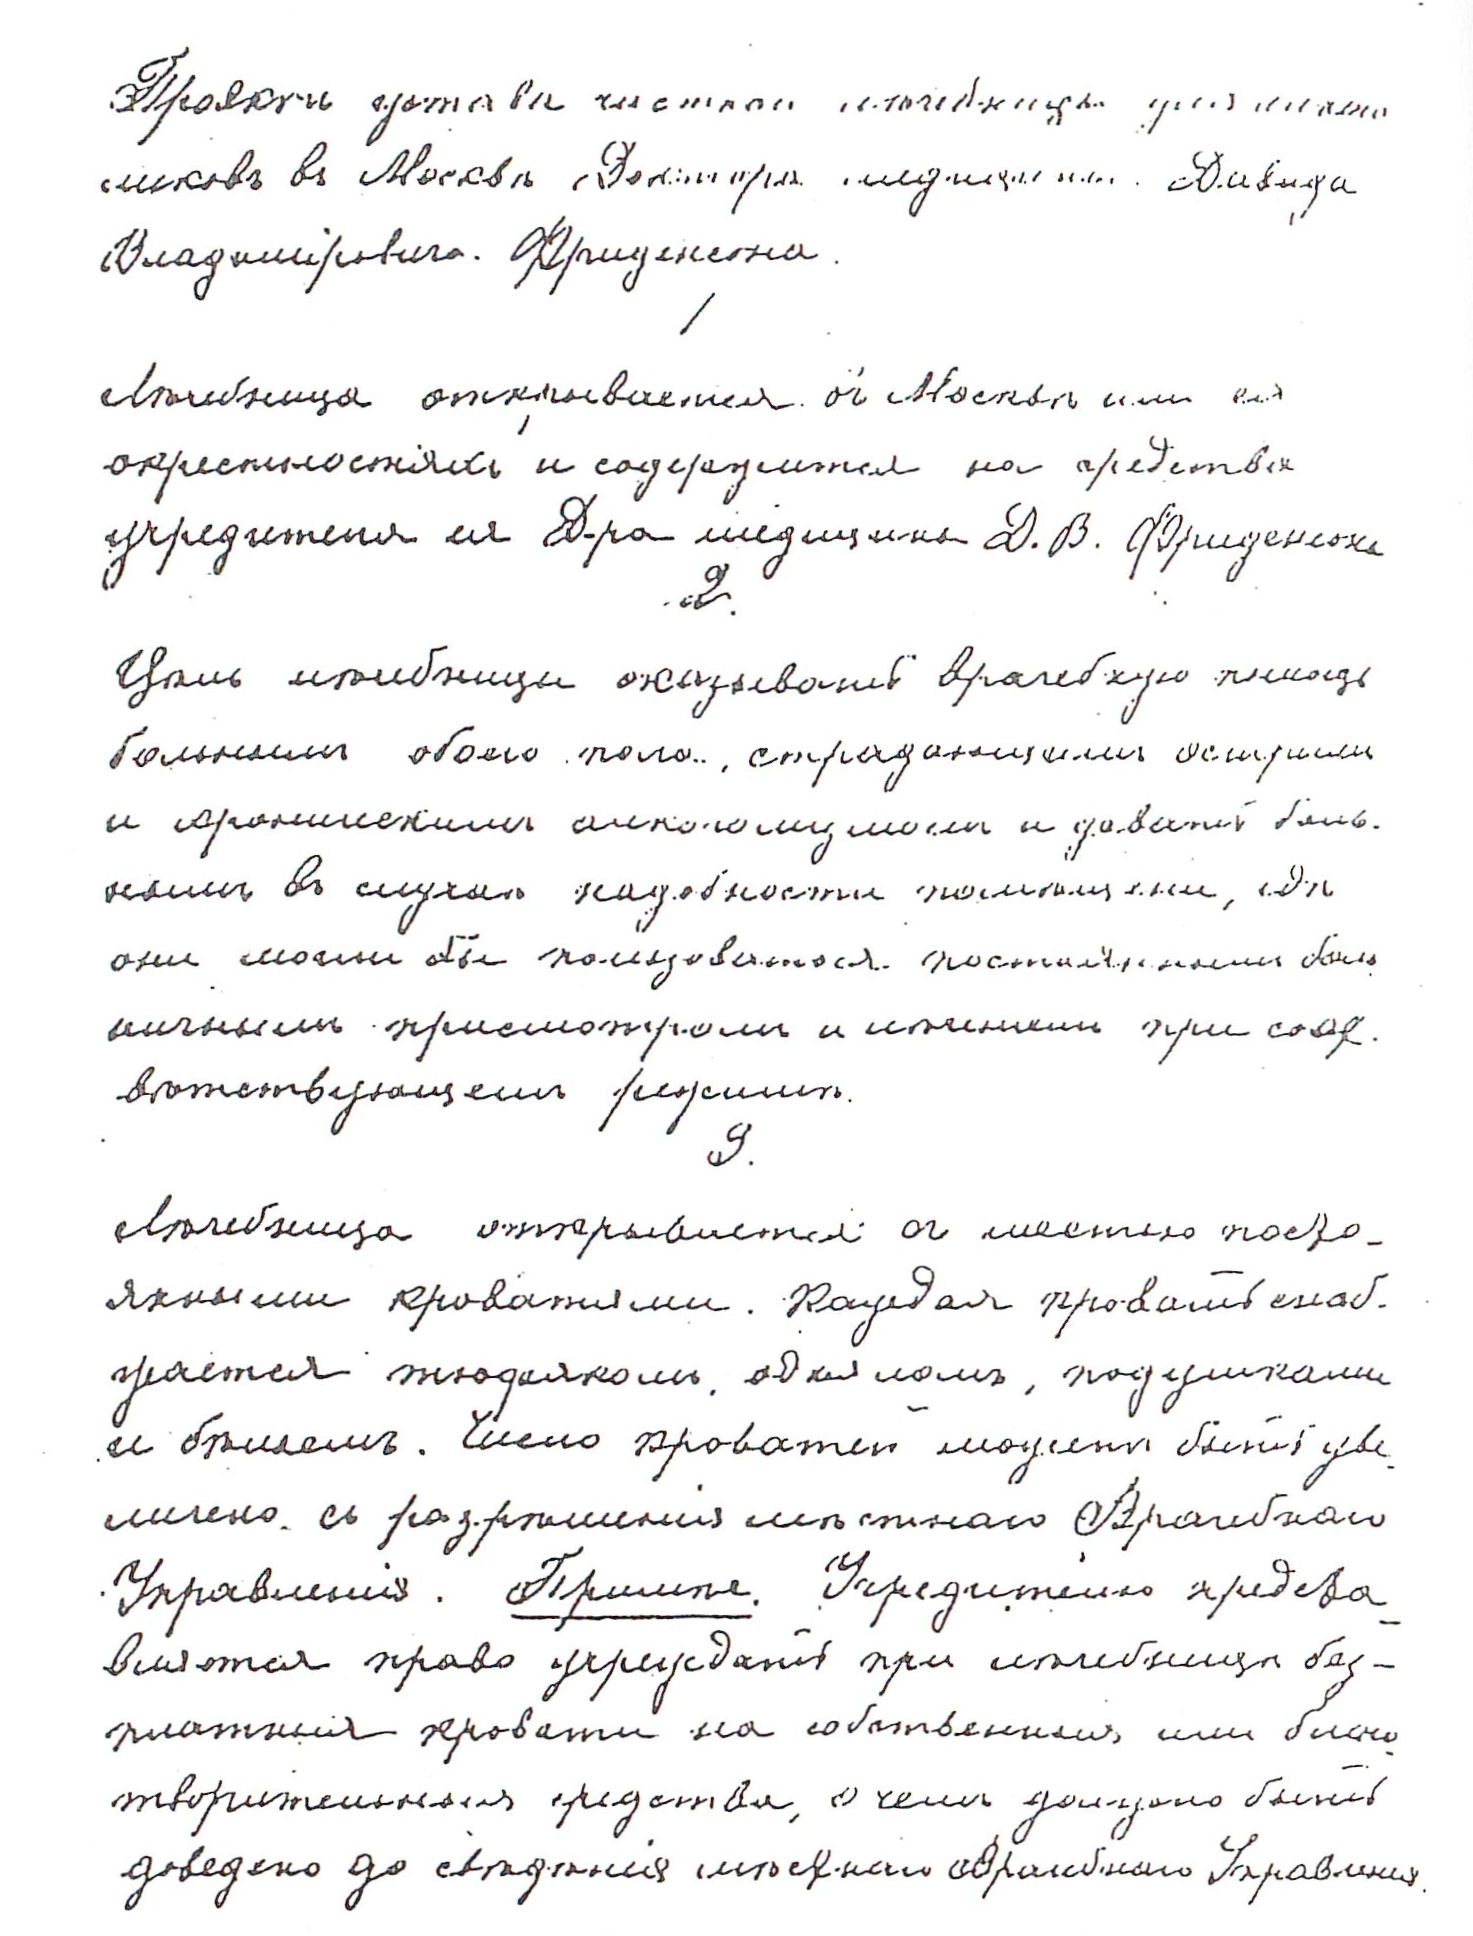 Проектъ устава частной лѣчебницы для алкого
ликовъ въ Москвѣ Доктора медицины Давида
Владиміровича Фриденсона.
1
Лѣчебница открывается въ Москвѣ или ея
окрестностяхъ и содержится на средства
учредителя ея Д-ра медицины Д. В. Фриденсона
2.
Цѣль лѣчебницы оказывать врачебную помощь
больнымъ обоего пола, страдающимъ острымъ
и хроническимъ алкоголизмомъ и давать боль-
нымъ въ случаѣ надобности помѣщеніе, гдѣ
они могли бы пользоваться постояннымъ боль
ничнымъ присмотромъ и лѣченіемъ при соот-
вѣтствующемъ режимѣ.
3.
Лѣчебница открывается съ шестью посто-
янными кроватями. Каждая кровать снаб-
жается тюфякомъ, одѣяломъ, подушками
и бѣльемъ. Число кроватей можетъ быть уве
личено съ разрѣшенія мѣстнаго Врачебнаго
Управленія. Примѣч. Учредителю предста-
вляется право учреждать при лѣчебницѣ без-
платныя кровати на собственныя или благо
творительныя средства, о чемъ должно быть
доведено до свѣдѣнія мѣстнаго Врачебнаго Управленія.